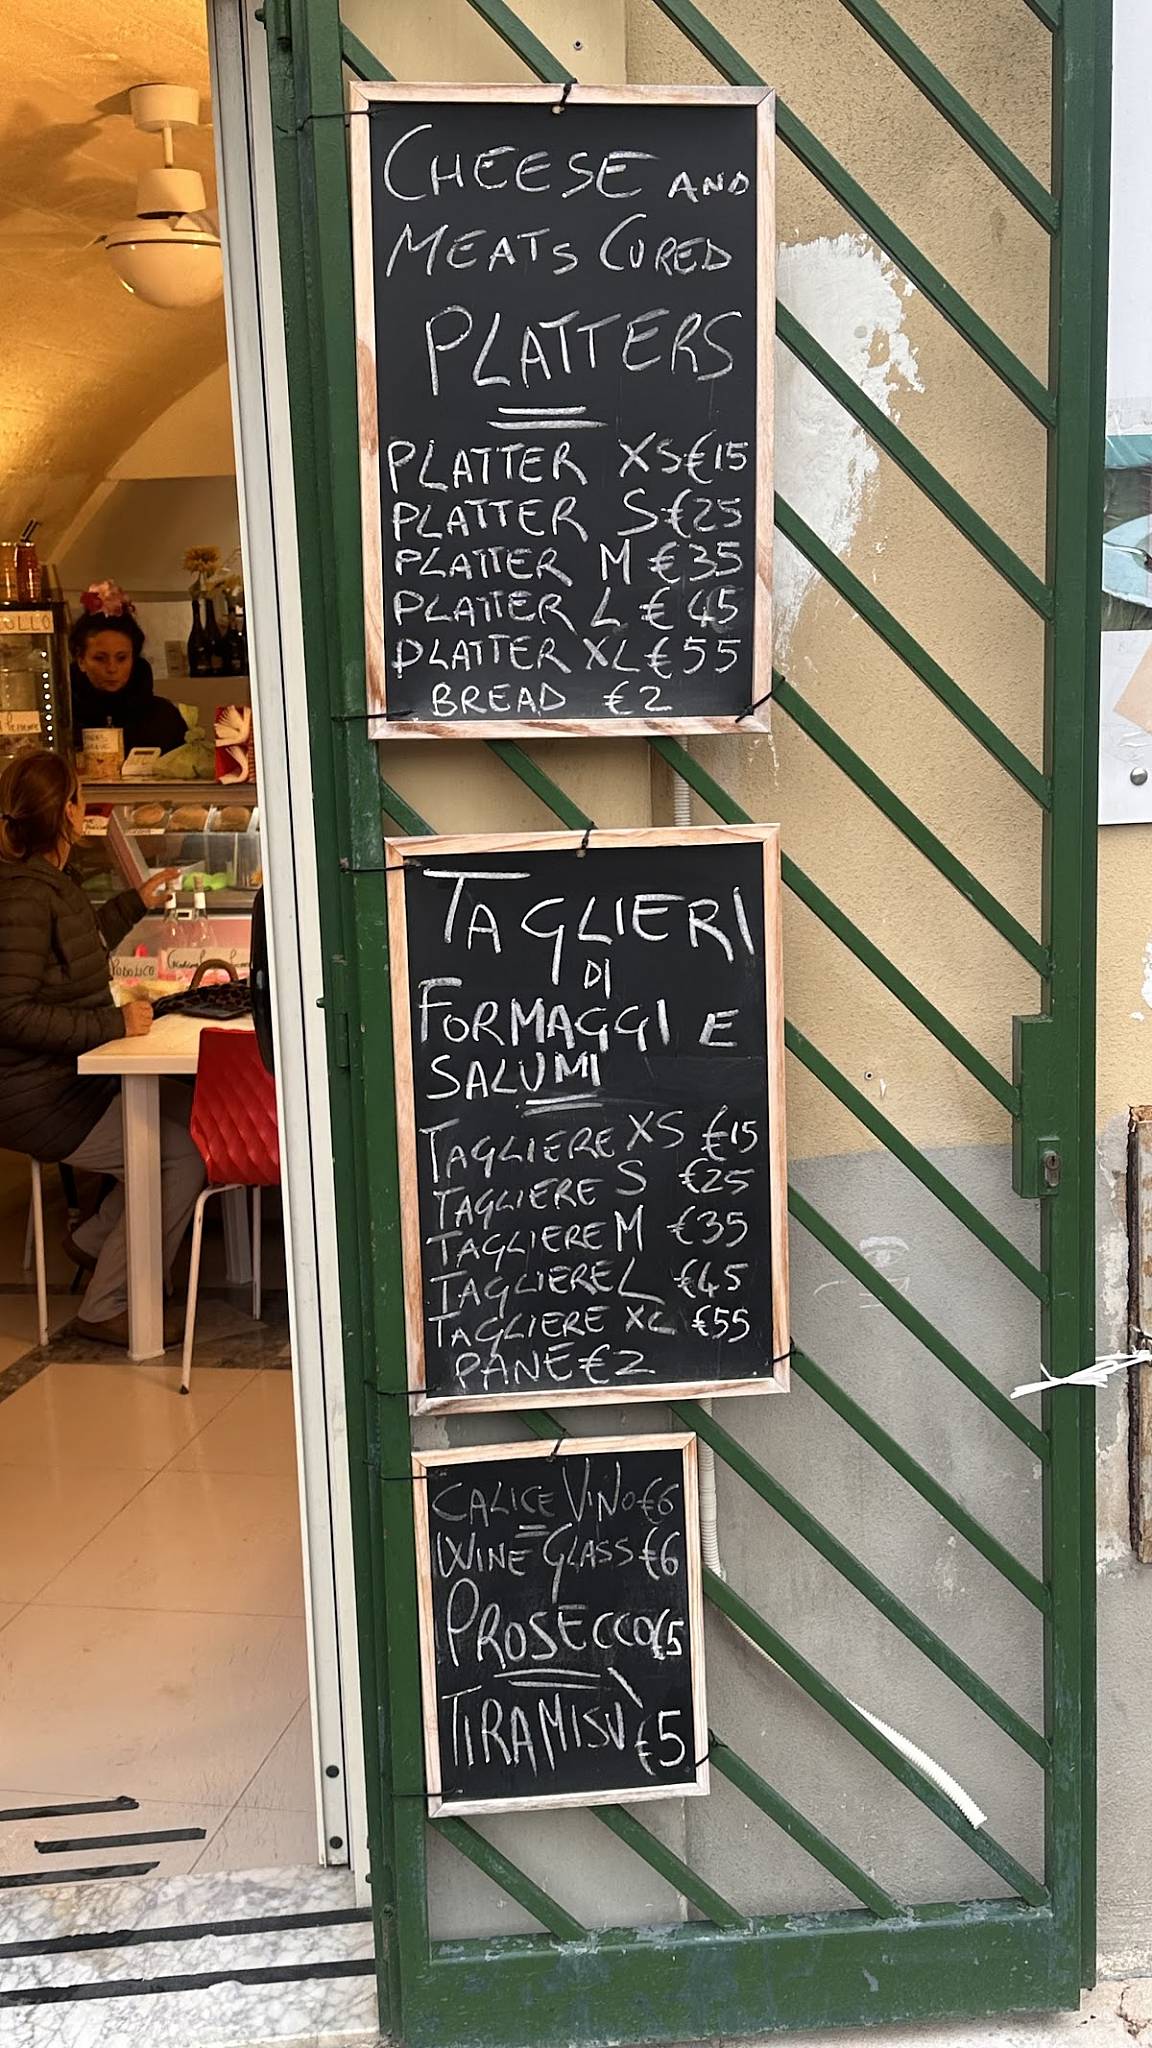 CHEESE AND
MEATS CURED
PLATTERS
PLATTER XS €15
PLATTER S €25
PLATTER M €35
PLATTER L €45
PLATTER XL €55
BREAD €2
TAGLIERI
DI
FORMAGGI E
SALUMI
TAGLIERE XS €15
TAGLIERE S €25
TAGLIERE M €35
TAGLIERE L €45
TAGLIERE XL €55
PANE €2
CALICE VINO €6
WINE GLASS €6
PROSECCO €5
TIRAMISÙ €5
PODOLICO